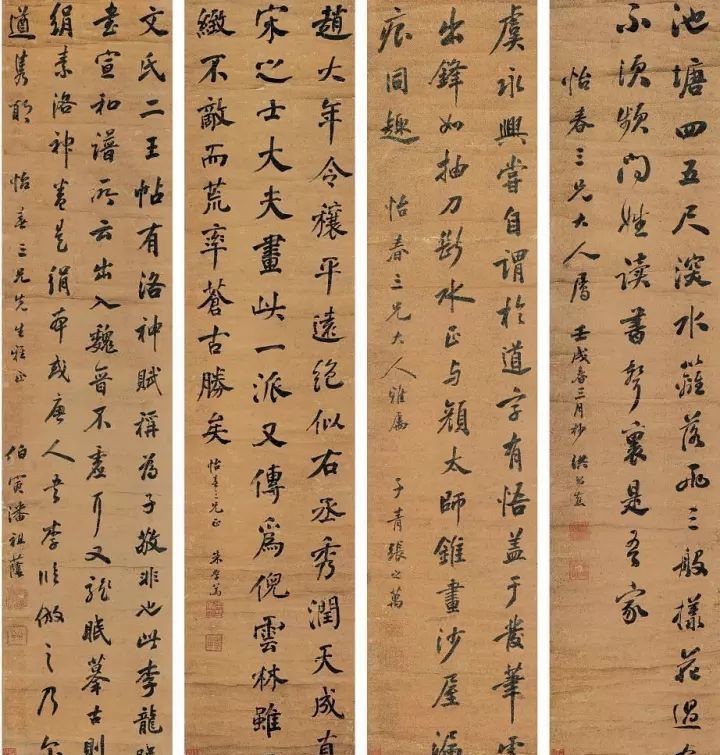 池塘四五尺深水蘺落兩三般樣花過客
不須頻問姓读書聲裏是吾家
怡春三兄大人屬 壬戌春三月杪
虞永興嘗自謂於道字有悟盖于發筆處
出鋒如抽刀斷水正与顏太師錐畫沙屋漏
痕同趣 怡春三兄大人雅屬 子青張之萬
趙大年令穰平遠絕似右丞秀潤天成真
宋之士大夫畫此一派又傳爲倪雲林雖
緻不敵而荒率蒼古勝矣 怡春三兄正 朱學篤
文氏二王帖有洛神賦稱為子敬非也此李龍眠
書宣和譜所云出入魏晉不虛耳又龍眠摹古則
絹素洛神卷是絹本或唐人書李臨倣之乃尔
遒雋耶 怡春三兄先生雅正 伯寅潘祖蔭